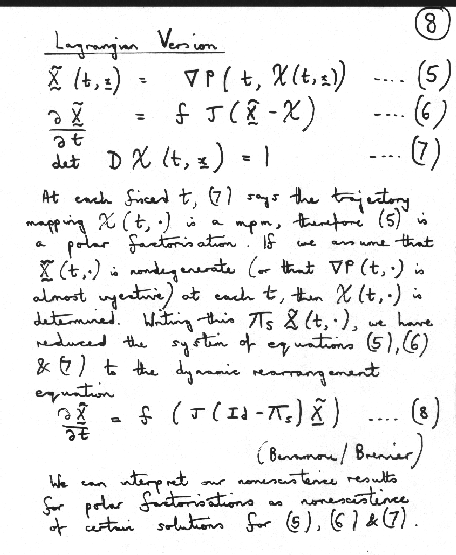 8
Lagrangian Version
X̃ (t, x) = ∇P( t, X(t, x)) .... (5)
∂X̃/∂t = f J ( X̃ - X ) .... (6)
det D X (t, x) = 1 .... (7)
At each fixed t, (7) says the trajectory
mapping X (t, ·) is a mpm, therefore (5) is
a polar factorisation. If we assume that
X̃ (t, ·) is nondegenerate (or that ∇P (t, ·) is
almost injective) at each t, then X (t, ·) is
determined. Writing this π_s X̃ (t, ·), we have
reduced the system of equations (5), (6)
& (7) to the dynamic rearrangement
equation
∂X̃/∂t = f ( J ( Id - π_s ) X̃ ) .... (8)
(Benamou / Brenier)
We can interpret our nonexistence results
for polar factorisations as nonexistence
of certain solutions for (5), (6) & (7).